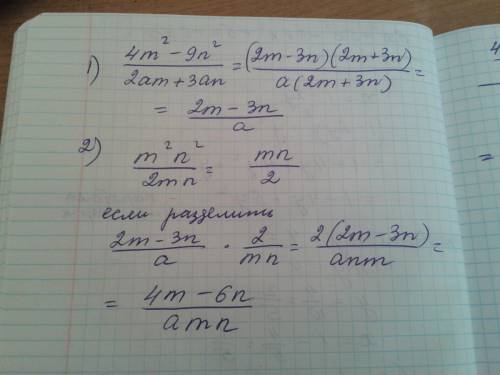 1) (4m² - 9n²)/(2am + 3an) = ((2m - 3n)(2m + 3n))/(a(2m + 3n)) =
= (2m - 3n)/a
2) (m²n²)/(2mn) = (mn)/2
если разделить
(2m - 3n)/a · 2/(mn) = (2(2m - 3n))/(anm) =
= (4m - 6n)/(amn)